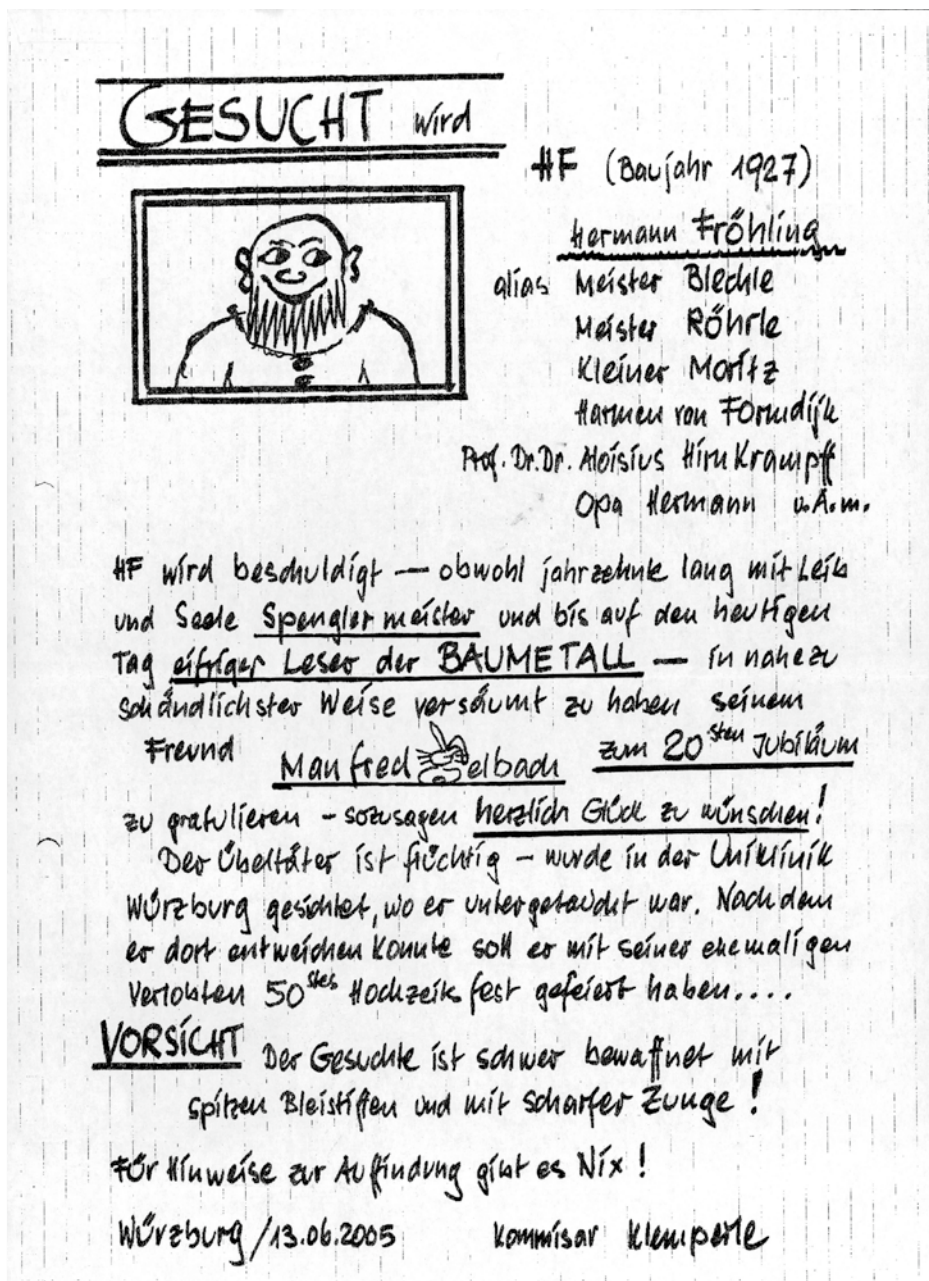 GESUCHT wird
HF (Baujahr 1927)
Hermann Fröhling
alias Meister Blechle
Meister Röhrle
Kleiner Moritz
Harmen von Formdijk
Prof. Dr. Dr. Aloisius Hirnkrampff
Opa Hermann u.A.m.
HF wird beschuldigt — obwohl jahrzehnte lang mit Leib
und Seele Spenglermeister und bis auf den heutigen
Tag eifriger Leser der BAUMETALL — in nahezu
schändlichster Weise versäumt zu haben seinem
Freund Manfred elbach zum 20sten Jubiläum
zu gratulieren – sozusagen herzlich Glück zu wünschen!
Der Übeltäter ist flüchtig – wurde in der Uniklinik
Würzburg gesichtet, wo er untergetaucht war. Nachdem
er dort entweichen konnte soll er mit seiner ehemaligen
Verlobten 50stes Hochzeitsfest gefeiert haben....
VORSICHT Der Gesuchte ist schwer bewaffnet mit
spitzen Bleistiften und mit scharfer Zunge!
Für Hinweise zur Auffindung gibt es Nix!
Würzburg / 13.06.2005 Kommisar Klemperle